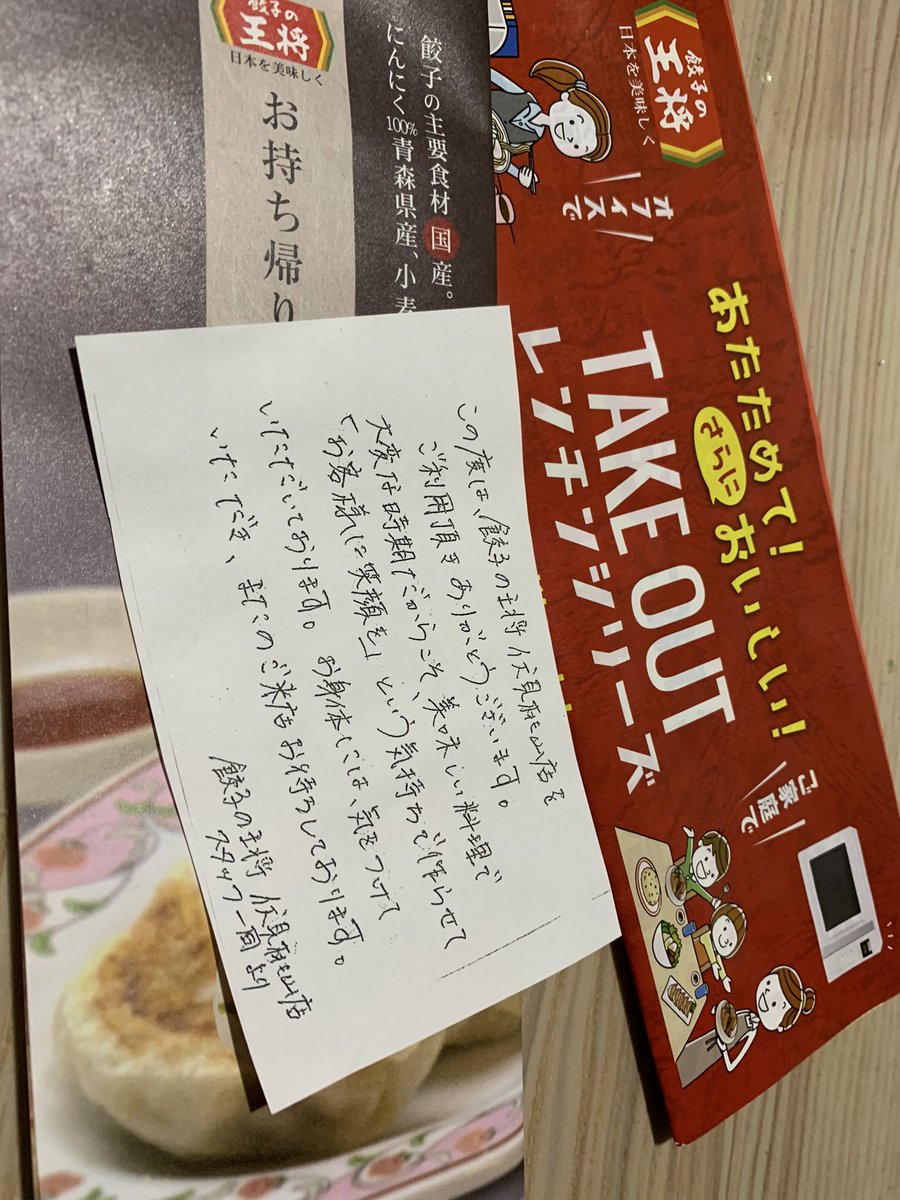 餃子の
王将
日本を美味しく
お持ち帰り
餃子の主要食材国産。
にんにく100%青森県産、小麦
餃子の
王将
日本を美味しく
オフィスで
あたためて!
さらに
おいしい!
TAKE OUT
レンチンシリーズ
ご家庭で
この度は、餃子の王将 伏見桃山店を
ご利用頂きありがとうございます。
大変な時期だからこそ、美味しい料理で
「お客様に笑顔を」という気持ちで作らせて
いただいております。お身体には、気をつけて
いただき、またのご来店お待ちしております。
餃子の王将 伏見桃山店
スタッフ一同より